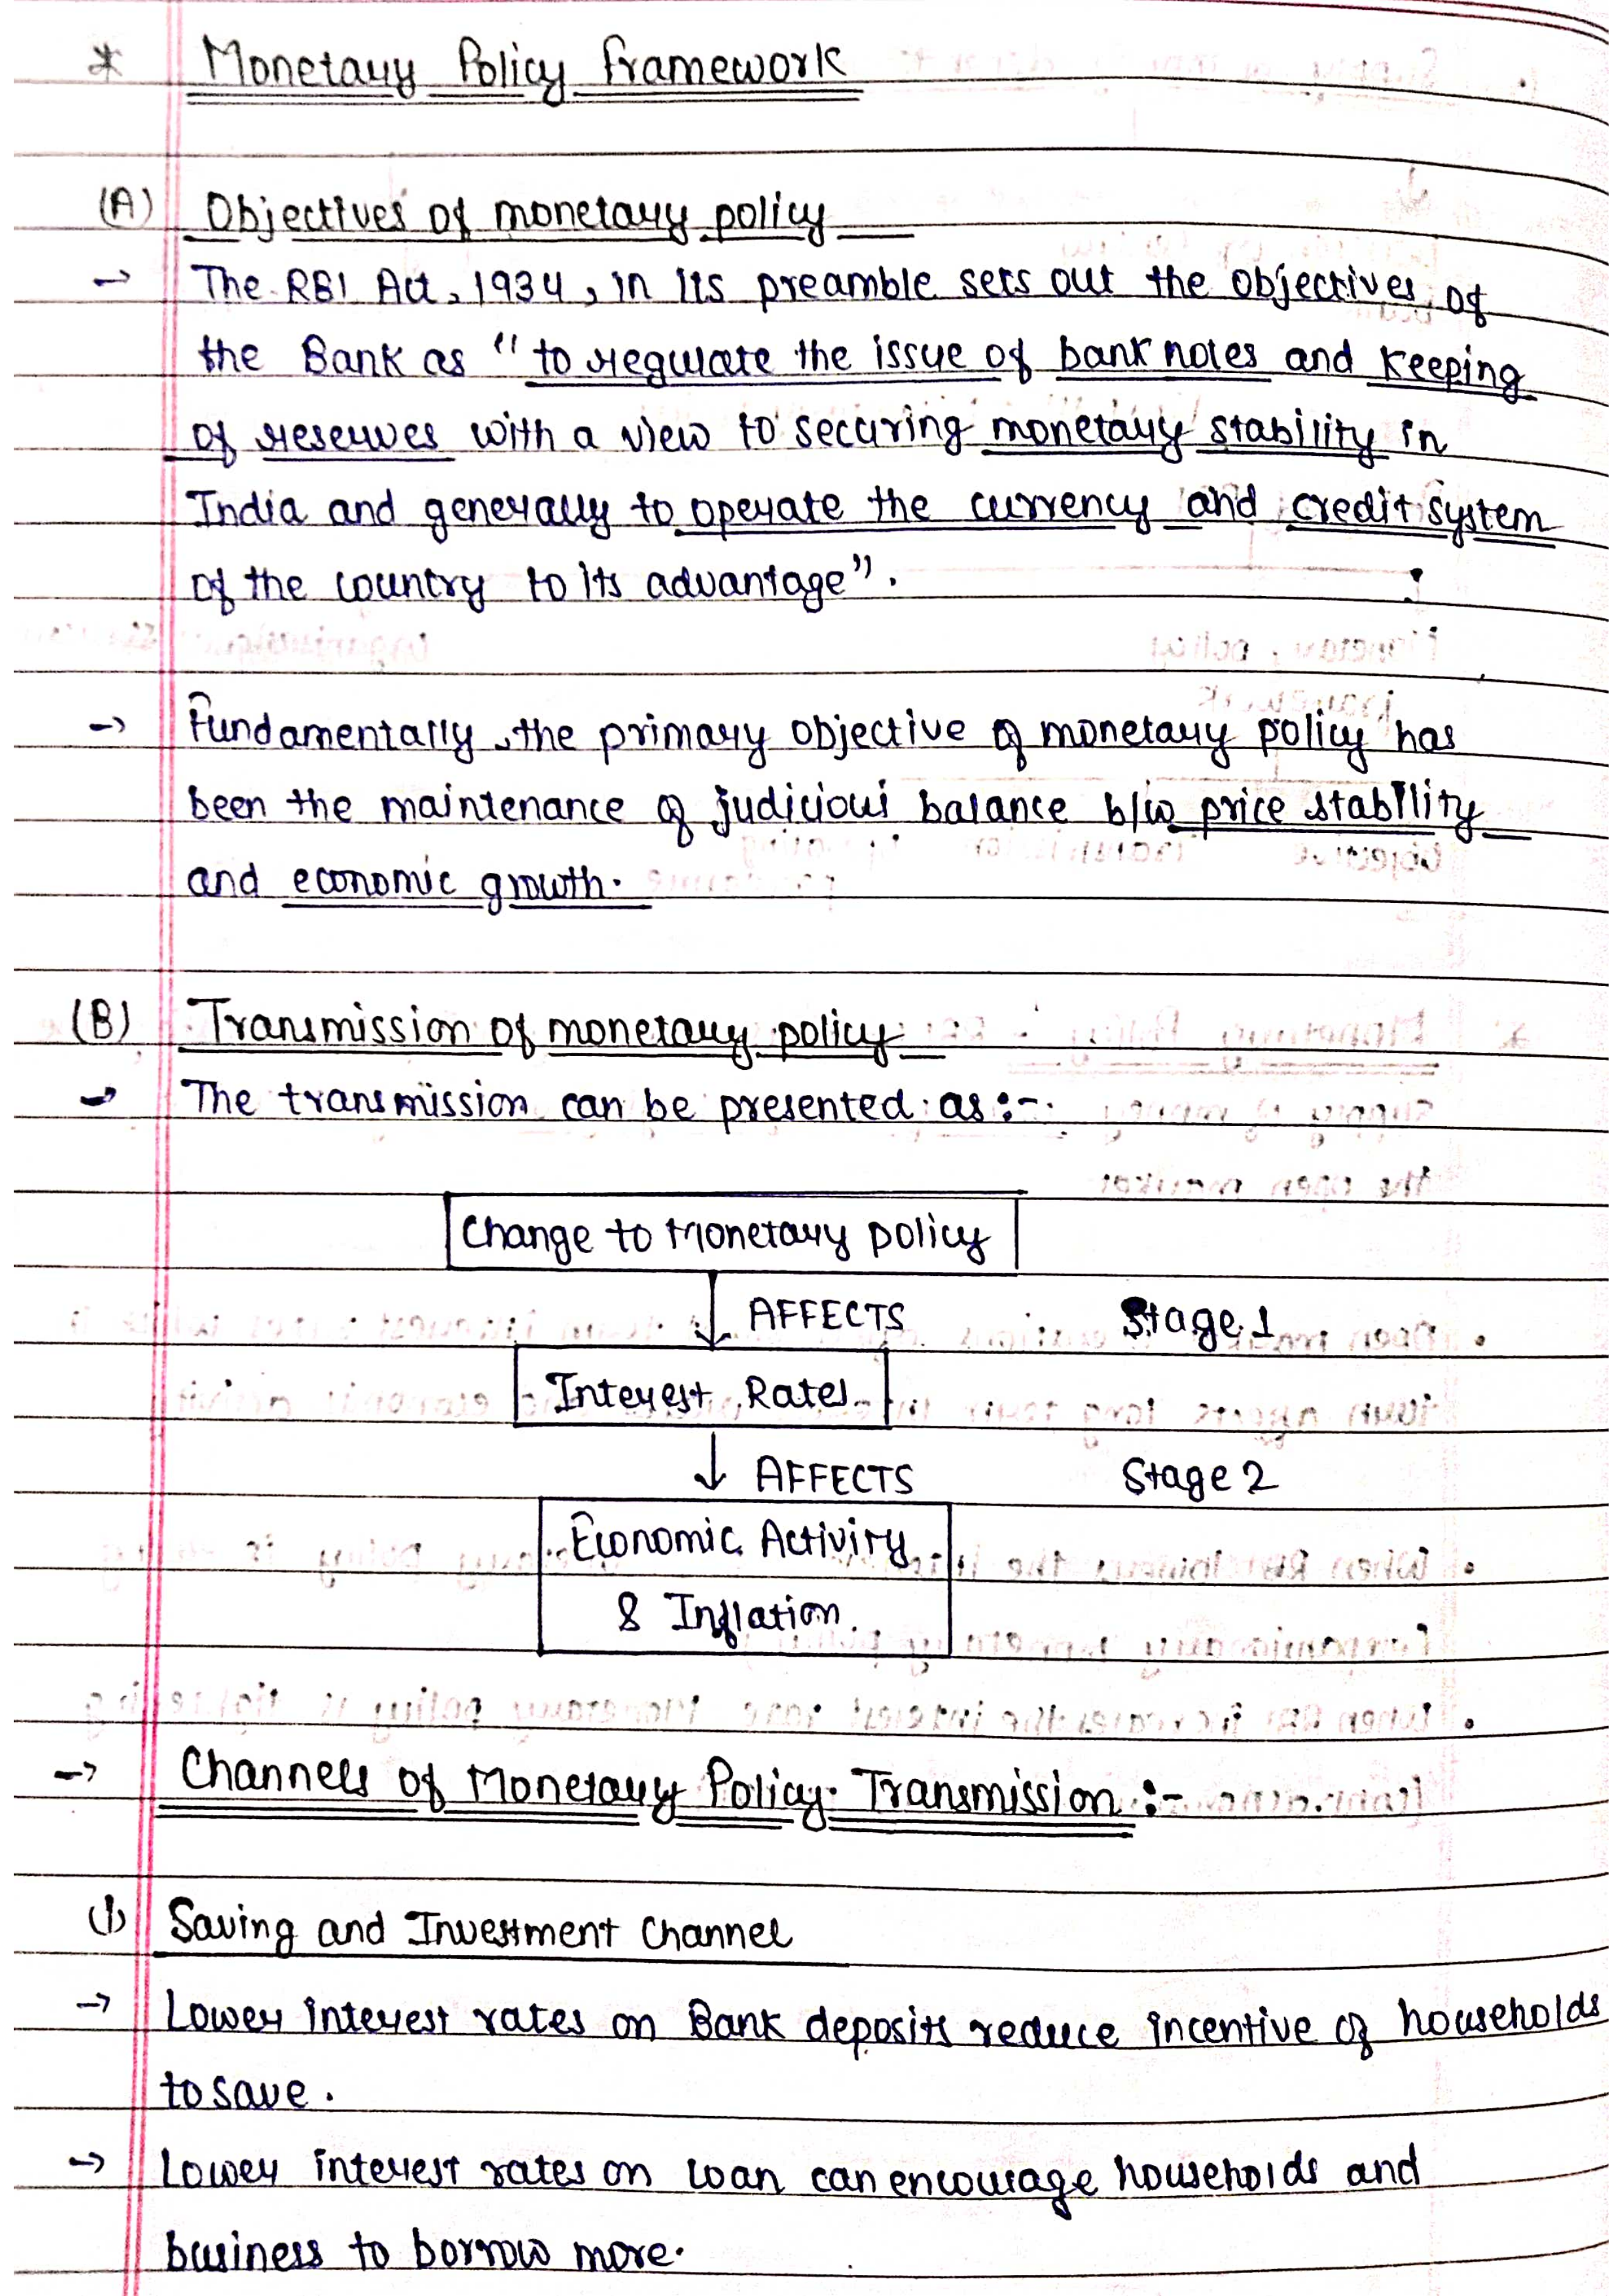 * Monetary Policy Framework
(A) Objectives of monetary policy
→ The RBI Act, 1934, in its preamble sets out the objectives of
the Bank as "to regulate the issue of bank notes and keeping
of reserves with a view to securing monetary stability in
India and generally to operate the currency and credit system
of the country to its advantage".
→ Fundamentally, the primary objective of monetary policy has
been the maintenance of judicious balance b/w price stability
and economic growth.
(B) Transmission of monetary policy
→ The transmission can be presented as :-
Change to Monetary policy
↓ AFFECTS Stage 1
Interest Rates
↓ AFFECTS Stage 2
Economic Activity
& Inflation
→ Channels of Monetary Policy Transmission :-
(1) Saving and Investment Channel
→ Lower interest rates on Bank deposits reduce incentive of households
to save.
→ Lower interest rates on loan can encourage households and
business to borrow more.